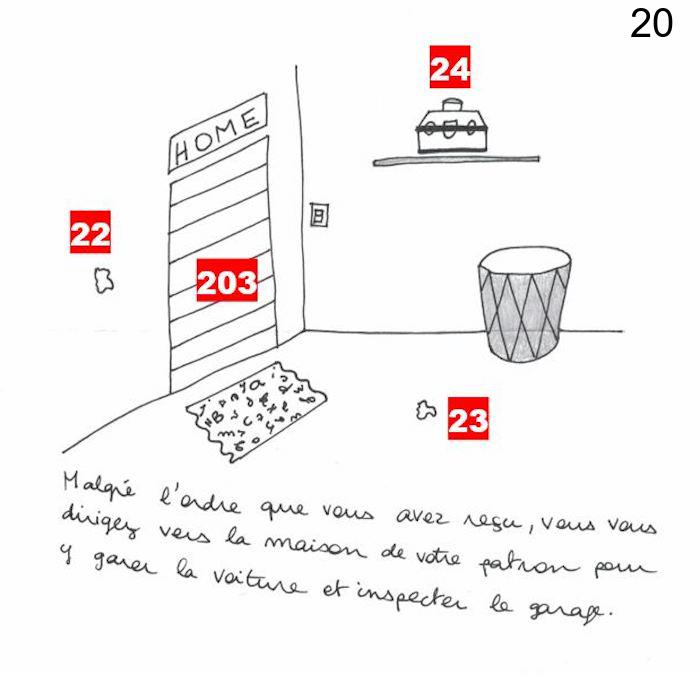 20
24
HOME
22
203
23
Malgré l'ordre que vous avez reçu, vous vous
dirigez vers la maison de votre patron pour
y garer la voiture et inspecter le garage.